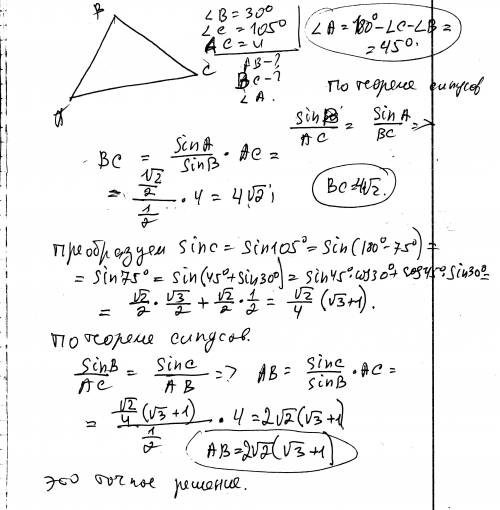 B
∠B = 30°
∠C = 105°
AC = 4
AB - ?
BC - ?
∠A.
∠A = 180° - ∠C - ∠B =
= 45°.
C
A
По теореме синусов
sinB/AC = sinA/BC =>
BC = sinA/sinB · AC =
= (√2/2)/(1/2) · 4 = 4√2;
BC = 4√2.
Преобразуем sinC = sin105° = sin(180° - 75°) =
= sin75° = sin(45° + sin30°) = sin45° cos30° + cos45° sin30° =
= √2/2 · √3/2 + √2/2 · 1/2 = √2/4 (√3+1).
По теореме синусов.
sinB/AC = sinC/AB => AB = sinC/sinB · AC =
= (√2/4 (√3+1))/(1/2) · 4 = 2√2(√3+1)
AB = 2√2(√3+1)
это точное решение.